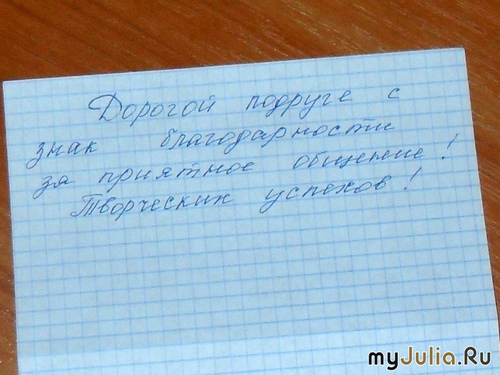 Дорогой подруге с
знак благодарности
за приятное общение!
Творческих успехов!
myJulia.Ru